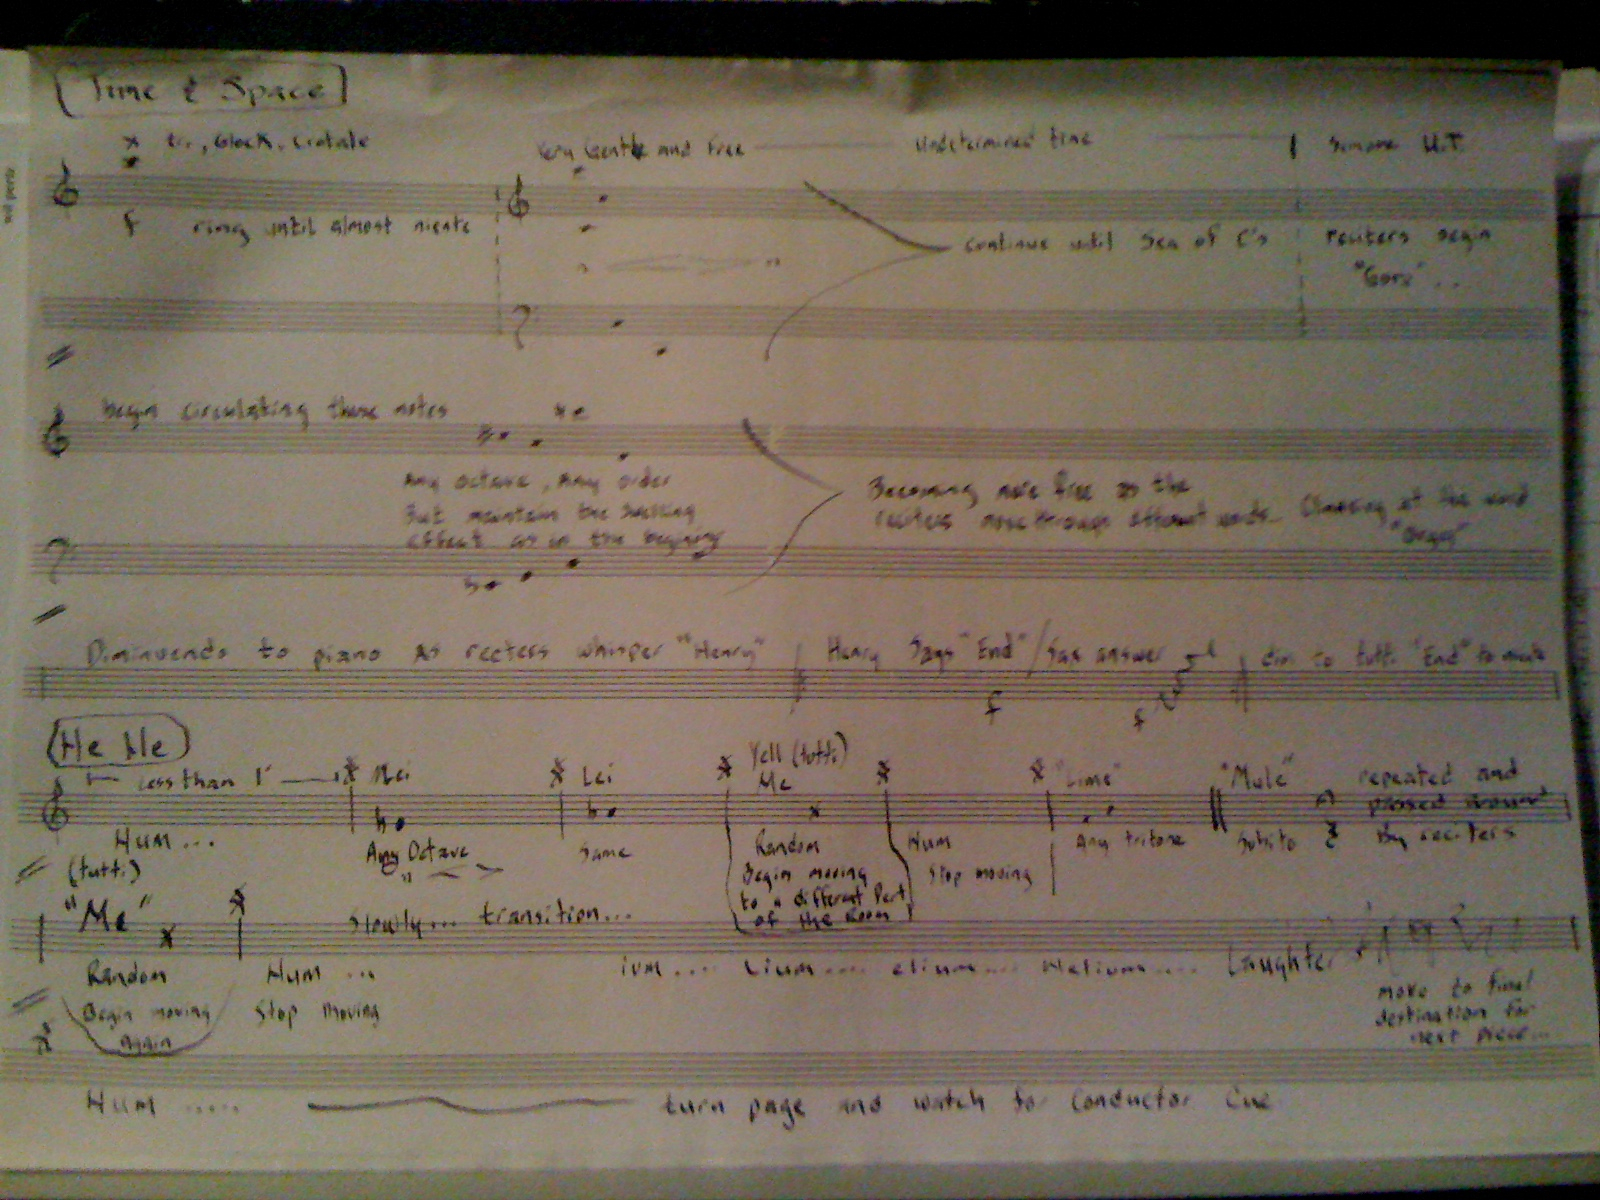 Time & Space
tri., Glock, Crotale
Very Gentle and Free
Undetermined time
Simone
f
ring until almost niente
continue until Sea of C's
reciters begin
begin circulating these notes
Any octave, Any order
But maintain the swelling
effect as in the begining
Becoming more free as the
reciters move through different words
at the word
Diminuendo to piano as reciters whisper "Henry"
Henry Says "End" / Sax answer
dim to tutti "End" to niente
f
f
He He
less than 1'
Mei
Lei
Yell (tutti)
Me
"Lime"
"Mule"
repeated and
passed around
By reciters
Hum ...
Any Octave
Same
Random
Begin moving
to a different Part
of the Room
Hum
Stop moving
Any tritone
Subito
(tutti)
"Me"
Slowly... transition...
Random
Begin moving
Again
Hum ...
Stop moving
ium .... Lium .... elium .... Helium .... Laughter
move to final
destination for
next piece...
Hum .....
turn page and watch for Conductor Cue